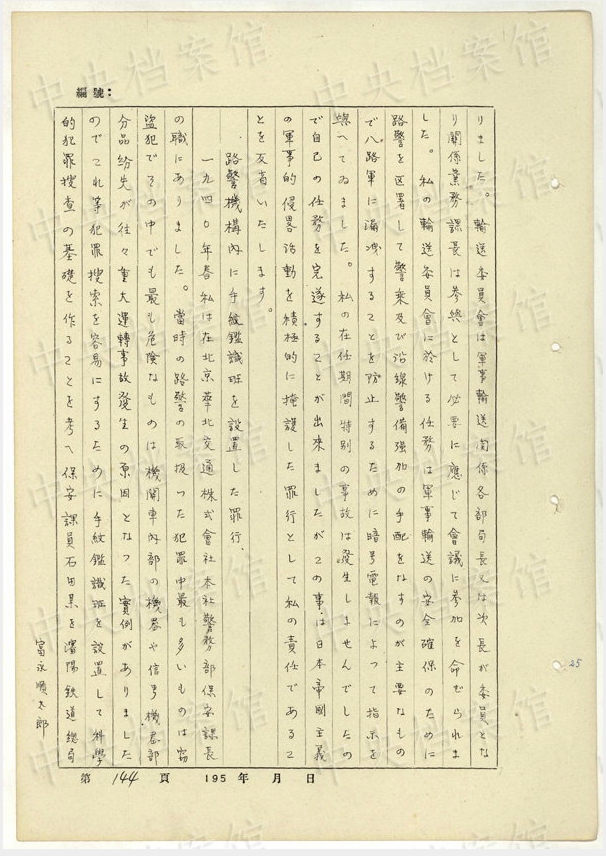 編號：
りました。輸送委員会は軍事輸送関係各部局長又は次長が委員とな
り関係業務課長は参終として必要に應じて會議に参加を命ぜられま
した。私の輸送委員会に於ける任務は軍事輸送の安全確保のために
路警を区署して警乗及び沿線警備強加の手配をなすのが主要なもの
で八路軍に漏洩することを防止するために暗号電報によつて指示を
與へてゐました。私の在任期間特別の事故は発生しませんでしたの
で自己の任務を完遂することが出来ましたがこの事は日本帝国主義
の軍事的侵畧活動を積極的に掩護した罪行として私の責任であるこ
とを反省いたします。
路警機構内に手紋鑑識班を設置した罪行．
一九四〇年春私は在北京華北交通株式會社本社警務部保安課長
の職にありました。當時の路警の取扱つた犯罪中最も多いものは窃
盗犯でその中でも最も危険なものは機関車内部の機器や信号機器部
分品紛失が往々重大運轉事故発生の原因となつた實例がありました
のでこれ等犯罪搜索を容易にするために手紋鑑識班を設置して科學
的犯罪搜査の基礎を作ることを考へ保安課員石田某を瀋陽鉄道總局
富永順太郎
第 144 頁 195 年 月 日
25
中央档案馆